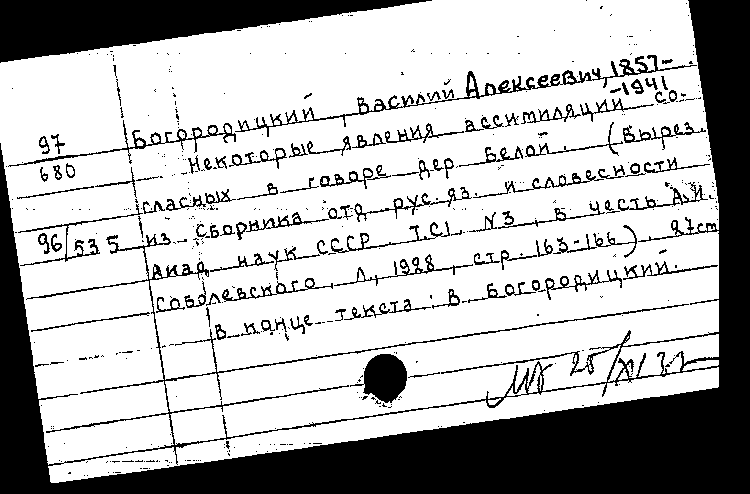 Богородицкий, Василий Алексеевич, 1857-
-1941
97
680
Некоторые явления ассимиляции со-
гласных в говоре дер Белой. (Вырез.
96/535 из Сборника отд рус. яз. и словесности
Акад наук СССР Т.CI N3, в честь А.И.
Соболевского, Л., 1928, стр. 163-166). 27cm
В конце текста: В. Богородицкий.
25/XI 32